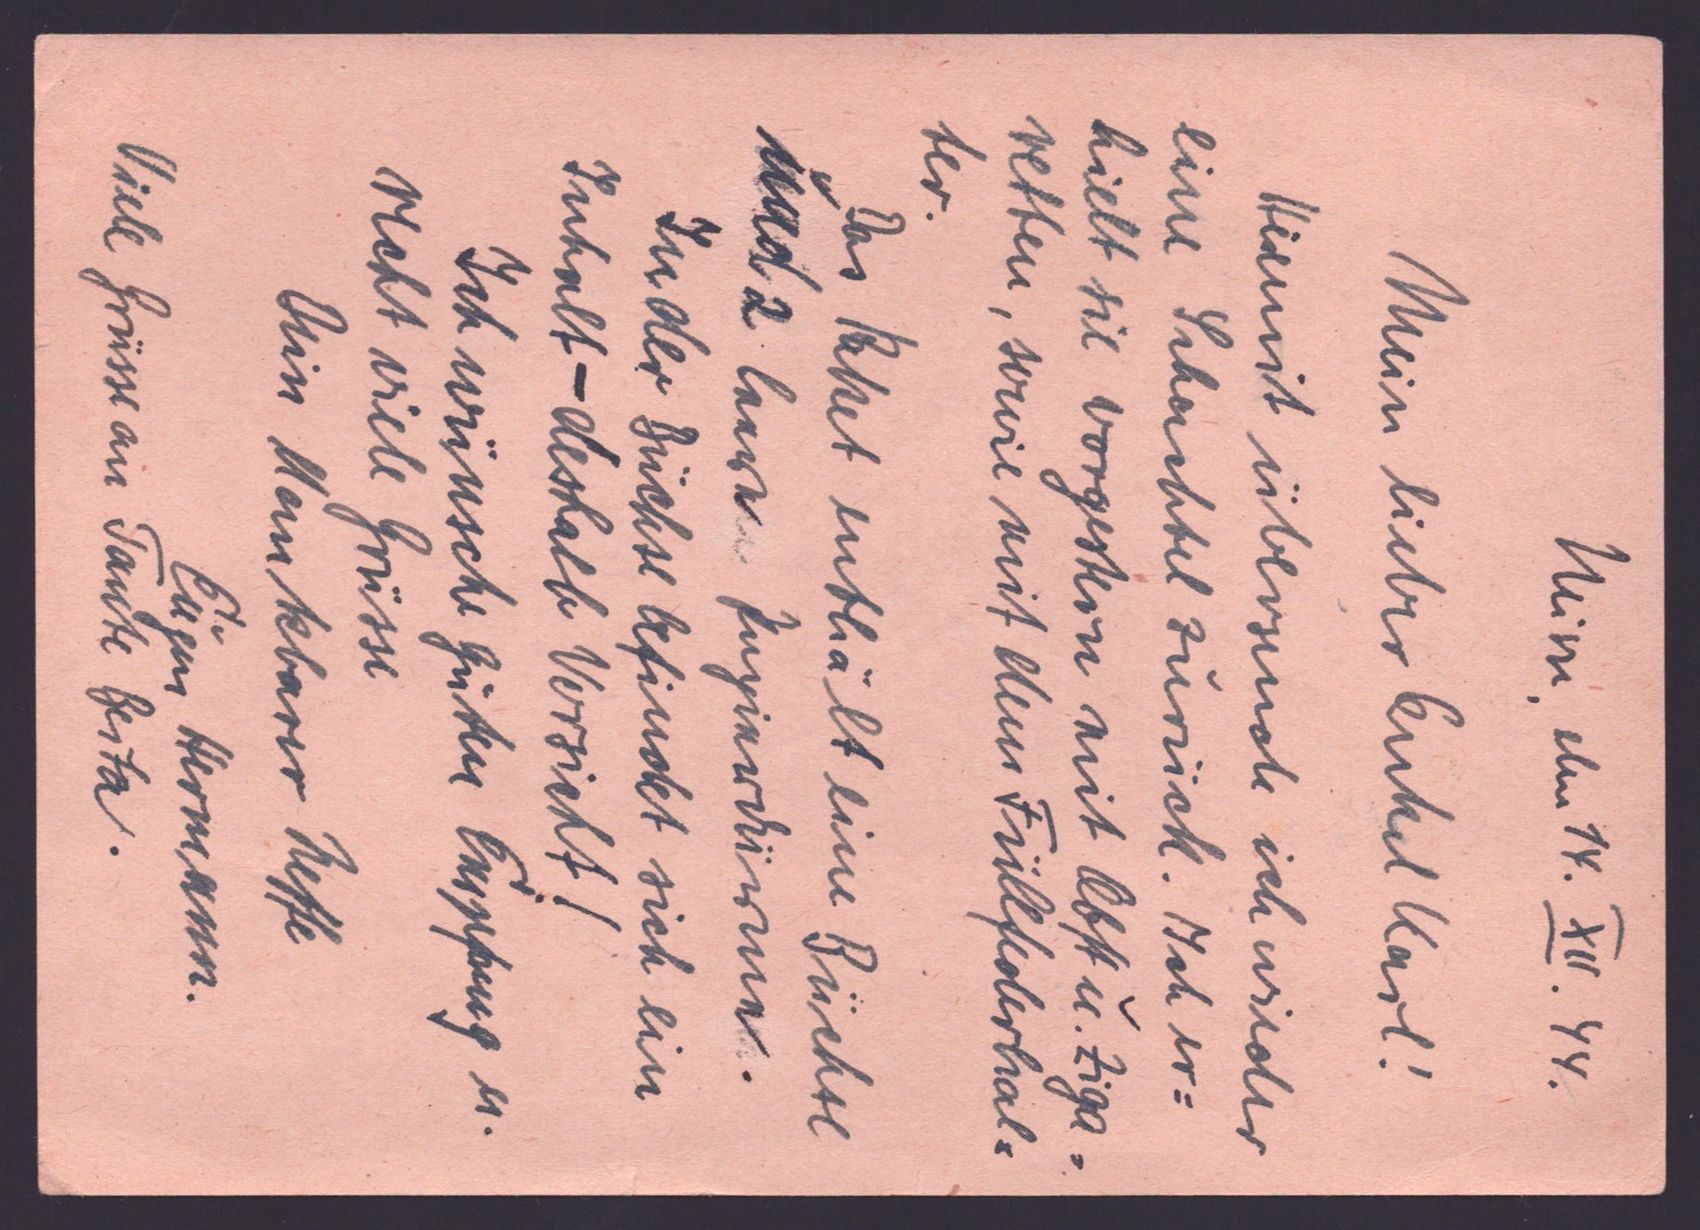 Wien, den 14. XII. 44.
Mein lieber Onkel Karl!
Hiermit übersende ich wieder
eine Schachtel zurück. Ich er=
hielt sie vorgestern mit Obst u. Ziga=
retten, sowie mit dem Füllfederhal=
ter.
Das Paket enthält eine Büchse
und 2 leere
In der Büchse befindet sich ein
Inhalt – deshalb Vorsicht!
Ich wünsche guten Empfang u.
recht viele Grüsse
Dein dankbarer Neffe
Eugen Hermann.
Viele Grüsse an Tante Berta.